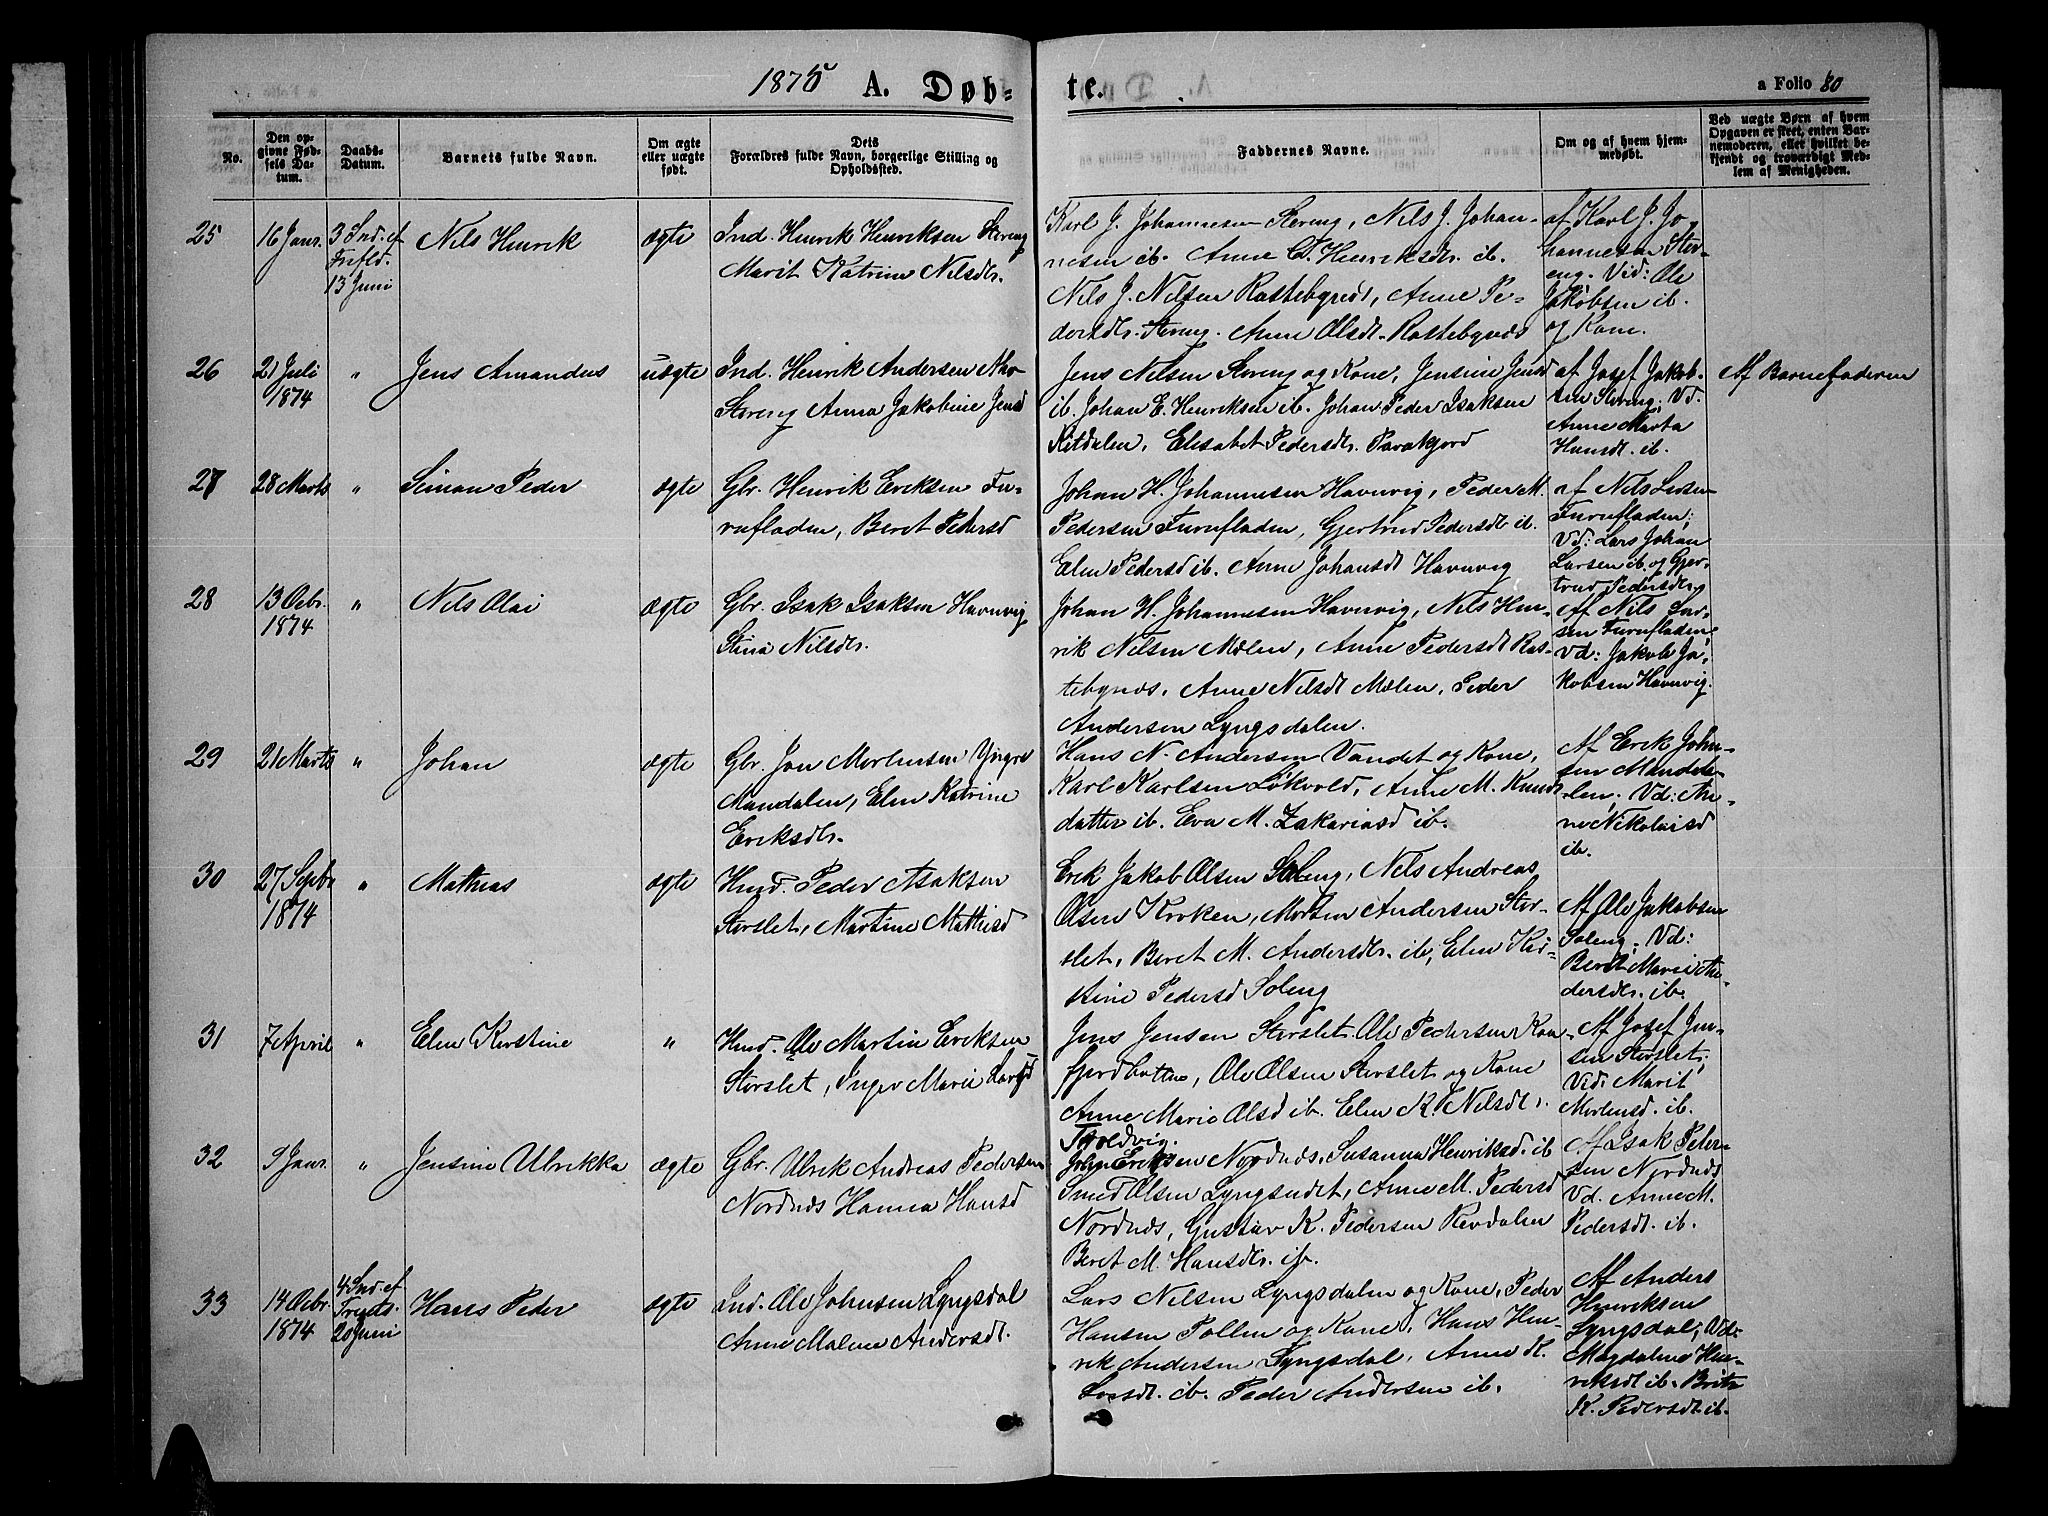 1875 A. Døb-
te.
a Folio 80
No.
Den op-
givne Fød-
sels Da-
tum.
Daabs-
Datum.
Barnets fulde Navn.
Om ægte
eller uægte
født.
Dets
Forældres fulde Navn, borgerlige Stilling og
Opholdssted.
Faddernes Navne.
Om og af hvem hjem-
medøbt.
Ved uægte Børn af hvem
Opgaven er skeet, enten Bar-
nemoderen, eller hvilket be-
kjendt og troværdigt Med-
lem af Menigheden.
25
16 Janr.
3 Snd. ef
Trefld.
13 Juni
Nils Henrik
ægte
Ind. Henrik Henriksen Stereng
Marit Katrine Nilsdtr.
Karl J. Johannesen Stereng, Nils J. Johan-
nesen ib. Anne C. Henriksdtr. ib.
Nils J. Nilsen Rastebynes, Anne Pe-
dersdtr. Stereng. Anne Olsdt. Rastebynes
af Karl J. Jo
hannesen Ster-
eng. Vid: Ole
Jakobsen ib.
og Kone.
26
21 Juli
1874
"
Jens Amandus
uægte
Ind. Henrik Andersen
Stereng Anna Jakobine Jensd
Jens Nilsen Stereng og Kone, Jensine Jensd
ib. Johan E. Henriksen ib. Johan Peder Isaksen
Kitdalen, Elisabet Pedersdtr. Parakjord
af Josef Jakob-
sen Stereng; Vd.
Anne Marta
Hansdt. ib.
Af Barnefaderen
27
28 Marts
"
Simon Peder
ægte
Gbr. Henrik Eriksen Fu-
rufladen, Beret Pedersd
Johan H. Johannesen Havnvig, Peder M.
Pedersen Furufladen, Gjertrud Pedersdt ib.
Elen Pedersd ib. Anne Johansdt Havnvig
af Nils Larsen
Furufladen;
Vd: Lars Johan
Larsen ib. og Gjer-
trud Pedersdtr.
28
13 Octbr.
1874
"
Nils Olai
ægte
Gbr. Isak Isaksen Havnvig
Stina Nilsdtr.
Johan H. Johannesen Havnvig, Nils Hen-
rik Nilsen Mælen, Anne Pedersdt Ras-
tebynes, Anne Nilsdt Mælen, Peder
Andersen Lyngsdalen.
af Nils Lar-
sen Furufladen,
Vd: Jakob Ja-
kobsen Havnvig.
29
21 Marts
"
Johan
ægte
Gbr. Jon Mortensen Yngre
Mandalen, Elen Katrine
Eriksdtr.
Hans N. Andersen Vandet og Kone,
Karl Karlsen Løkvold, Anne M. Knuds
datter ib. Eva M. Zakariasd ib.
Af Erik John-
sen Manda-
len; Vd: An-
ne Nikolaisd
ib.
30
27 Septbr
1874
"
Mathias
ægte
Hmd. Peder Isaksen
Storslet, Martine Mathisd
Erik Jakob Olsen Soleng, Nils Andreas
Olsen Kroken, Morten Andersen Stor-
slet, Beret M. Andersdtr. ib, Elen Kir-
stine Pedersd Soleng
Af Ole Jakobsen
Soleng; Vd:
Beret Marie An-
dersdtr. ib.
31
7 April
"
Elen Kirstine
"
Hmd. Ole Martin Eriksen
Storslet, Inger Marie Larsd
Jens Jensen Storslet. Ole Pedersen Kaa-
fjordbotten, Ole Olsen Storslet og Kone
Anne Marie Olsd ib. Elen K. Nilsdtr.
Toldvig.
Af Josef Jen-
sen Storslet;
Vid: Marit
Mortensd. ib.
32
9 Janr.
"
Jensine Ulrikka
ægte
Gbr. Ulrik Andreas Pedersen
Nordnes Hanna Hansd
John Eriksen Nordnes. Susanna Henriksd. ib
Smed Olsen Lyngseidet, Anne M. Pedersd
Nordnes, Gustav K. Pedersen Revdalen
Beret M. Hansdtr. ib.
Af Isak Peder-
sen Nordnes
Vd. Anne M.
Pedersdt. ib.
33
14 Octbr.
1874
4 Snd. ef
Trefs.
20 Juni
Hans Peder
ægte
Ind. Ole Johnsen Lyngsdal
Anne Malene Andersdt.
Lars Nilsen Lyngsdalen og Kone, Peder
Hansen Pollen og Kone, Hans Hen-
rik Andersen Lyngsdal, Anne K.
Larsdt. ib. Peder Andersen ib.
Af Anders
Henriksen
Lyngsdal; Vd:
Magdalene Hen-
riksdt ib. Brita
K. Pedersdt. ib.